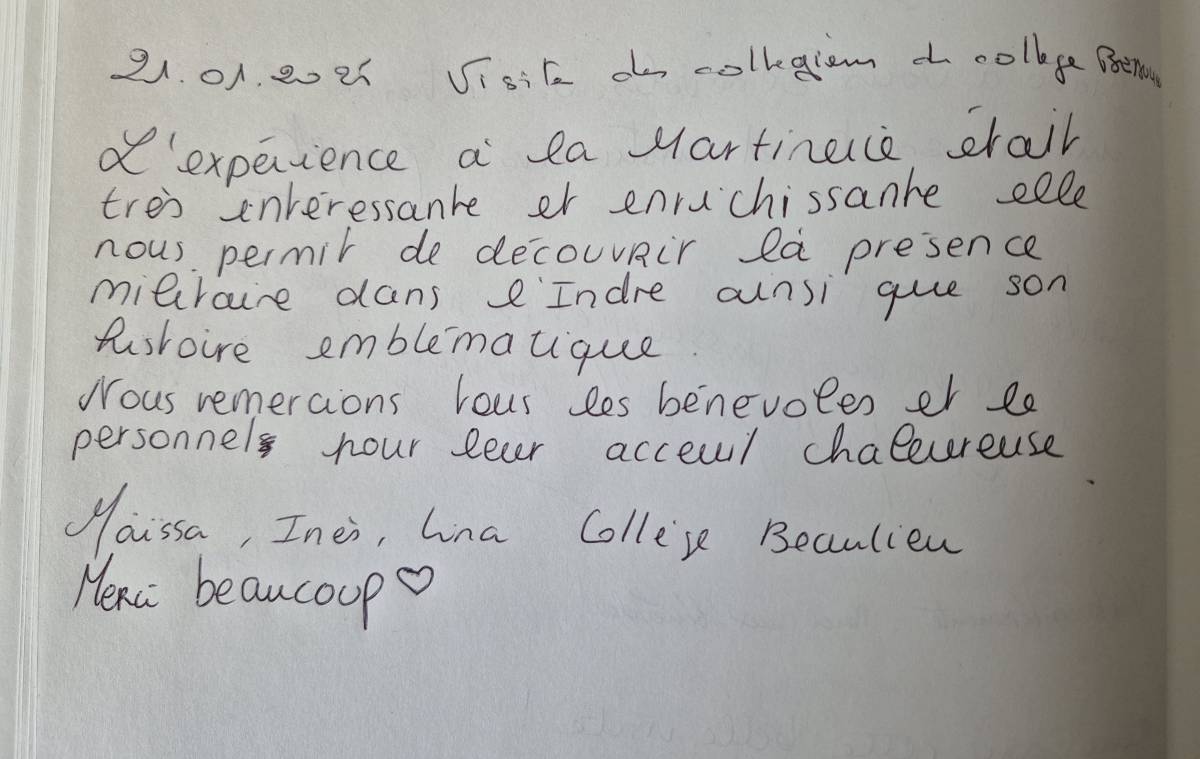 21.01.2025 Visite des collégiens du collège
L'expérience à la Martinerie était
très intéressante et enrichissante elle
nous permit de découvrir la présence
militaire dans l'Indre ainsi que son
histoire emblématique.
Nous remercions tous les bénévoles et le
personnels pour leur acceuil chaleureuse.
Maïssa, Inès, Lina Collège Beaulieu
Merci beaucoup ♡